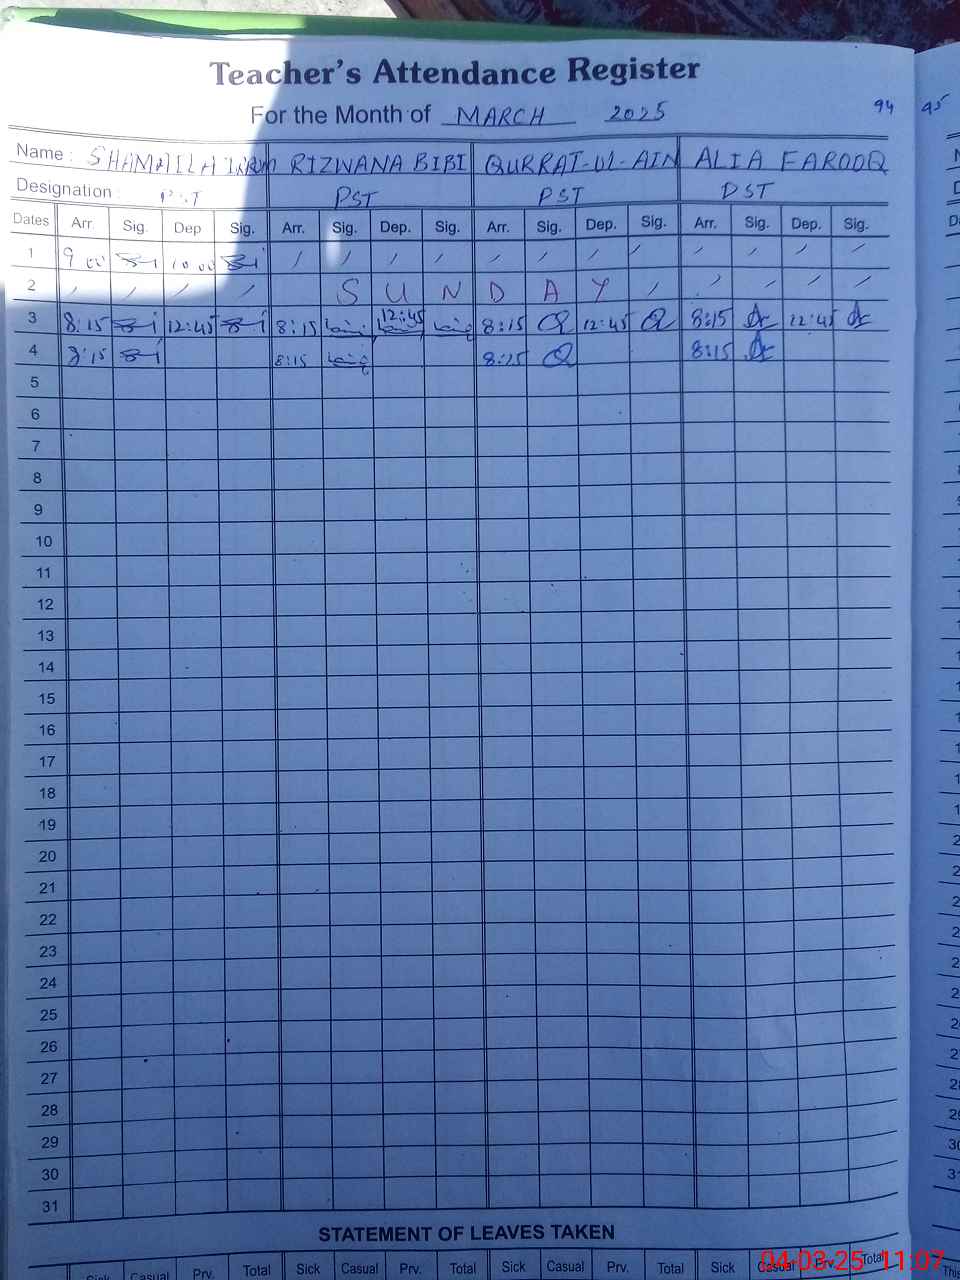 Teacher's Attendance Register
For the Month of MARCH 2025 94 95
Name : SHAMAILA RIZWANA BIBI QURRAT-UL-AIN ALIA FAROOQ
Designation : PST PST PST PST
Dates Arr. Sig. Dep Sig. Arr. Sig. Dep. Sig. Arr. Sig. Dep. Sig. Arr. Sig. Dep. Sig.
1 9 00 10 00
2 SUNDAY
3 8:15 12:45 8:15 12:45 8:15 12:45 8:15 12:45
4 8:15 8:15 8:25 8:15
5
6
7
8
9
10
11
12
13
14
15
16
17
18
19
20
21
22
23
24
25
26
27
28
29
30
31
STATEMENT OF LEAVES TAKEN
Sick Casual Prv. Total Sick Casual Prv. Total Sick Casual Prv. Total Sick Casual Prv. Total
04-03-25 11:07